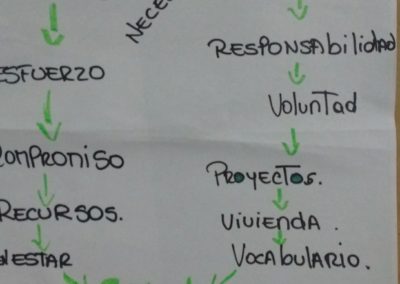 NECE
RESPONSAbiliDAD
ESFUERZO
VoluntAd
COMPROMISO
PROYECTOS.
RECURSOS.
VIVIENDA.
NESTAR
VOCAbULARIO.